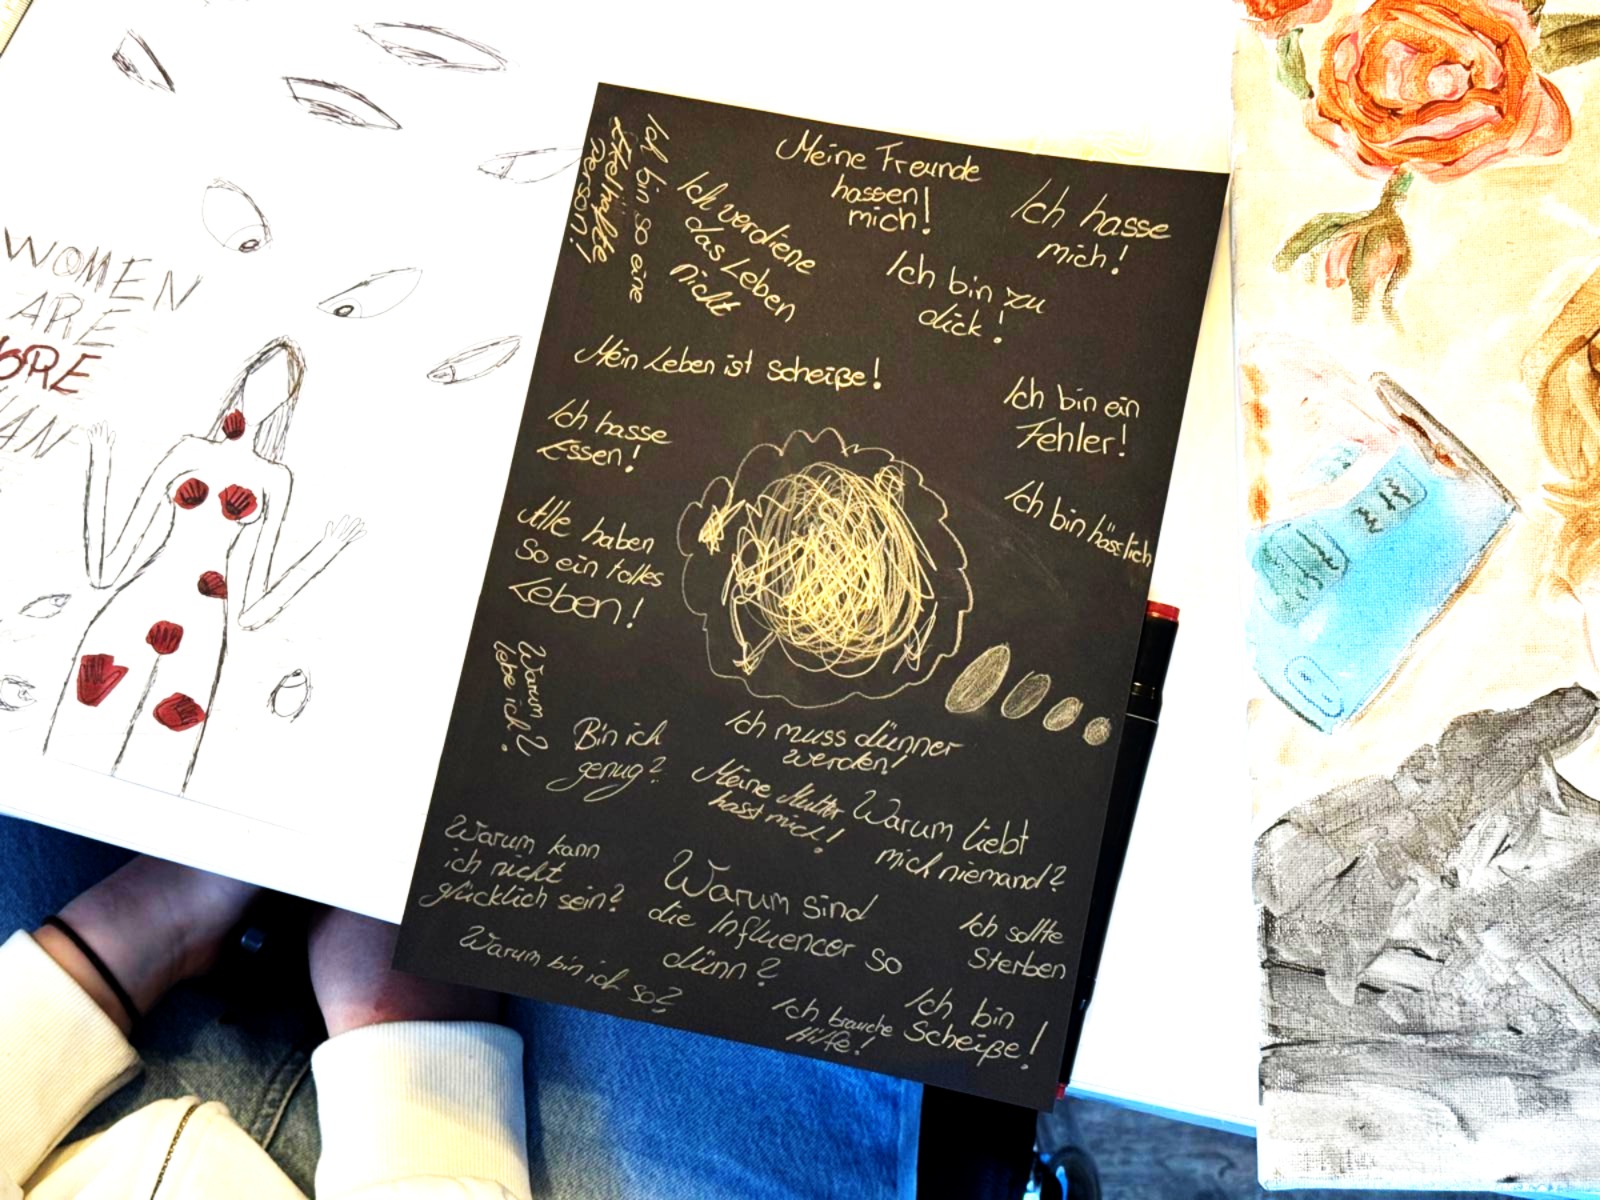 WOMEN
ARE
MORE
Ich bin so eine
ekelhafte
Person!
Ich verdiene
das Leben
nicht
Meine Freunde
hassen
mich!
Ich hasse
mich!
Ich bin zu
dick!
Mein Leben ist scheiße!
Ich bin ein
Fehler!
Ich hasse
Essen!
Ich bin hässlich
Alle haben
so ein tolles
Leben!
Warum
lebe ich?
Bin ich
genug?
Ich muss dünner
werden!
Meine Mutter
hasst mich!
Warum liebt
mich niemand?
Warum kann
ich nicht
glücklich sein?
Warum sind
die Influencer so
dünn?
Ich sollte
Sterben
Warum bin ich so?
Ich brauche
Hilfe!
Ich bin
Scheiße!